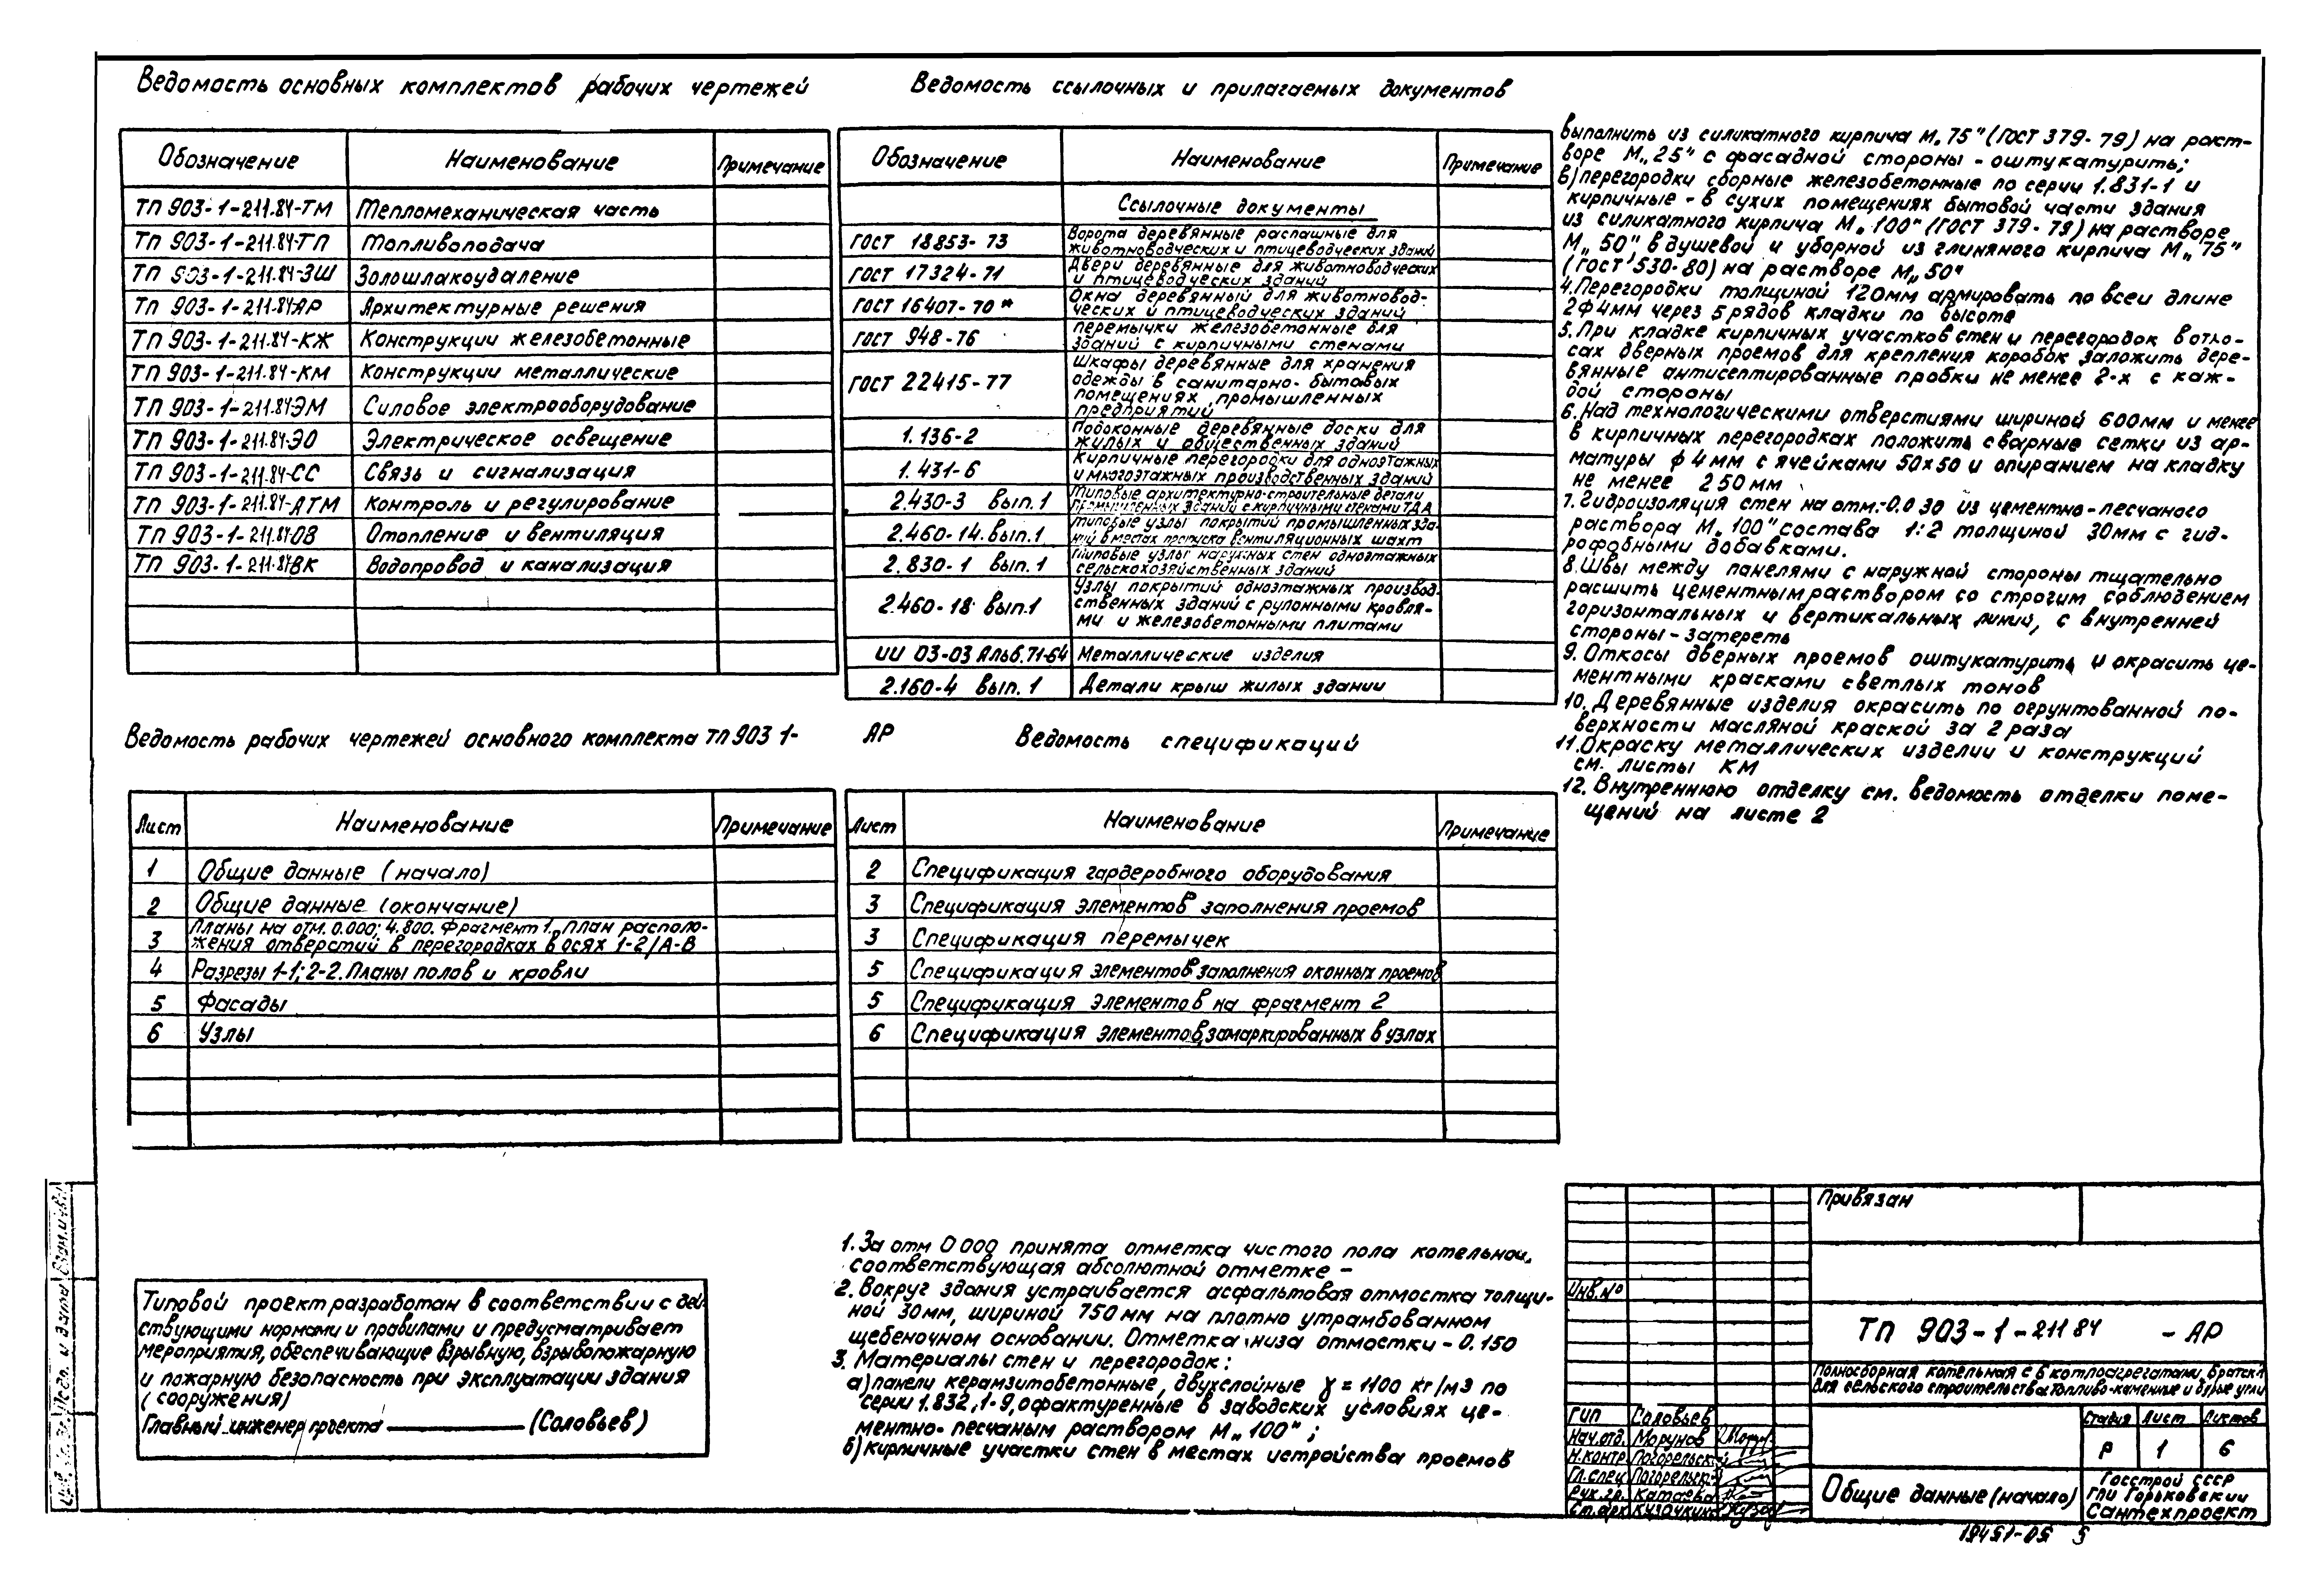 Ведомость основных комплектов рабочих чертежей
Обозначение Наименование Примечание
ТП 903-1-211.84-ТМ Тепломеханическая часть
ТП 903-1-211.84-ТП Топливоподача
ТП 903-1-211.84-ЗШ Золошлакоудаление
ТП 903-1-211.84АР Архитектурные решения
ТП 903-1-211.84-КЖ Конструкции железобетонные
ТП 903-1-211.84-КМ Конструкции металлические
ТП 903-1-211.84ЭМ Силовое электрооборудование
ТП 903-1-211.84-ЭО Электрическое освещение
ТП 903-1-211.84-СС Связь и сигнализация
ТП 903-1-211.84-АТМ Контроль и регулирование
ТП 903-1-211.84ОВ Отопление и вентиляция
ТП 903-1-211.84ВК Водопровод и канализация
Ведомость ссылочных и прилагаемых документов
Обозначение Наименование Примечание
Ссылочные документы
ГОСТ 18853-73 Ворота деревянные распашные для
животноводческих и птицеводческих зданий
ГОСТ 17324-71 Двери деревянные для животноводческих
и птицеводческих зданий
ГОСТ 16407-70* Окна деревянный для животновод-
ческих и птицеводческих зданий
ГОСТ 948-76 перемычки железобетонные для
зданий с кирпичными стенами
ГОСТ 22415-77 Шкафы деревянные для хранения
одежды в санитарно-бытовых
помещениях промышленных
предприятий
1.136-2 Подоконные деревянные доски для
жилых и общественных зданий
1.431-6 Кирпичные перегородки для одноэтажных
и многоэтажных производственных зданий
2.430-3 вып.1 Типовые архитектурно-строительные детали
промышленных зданий с кирпичными стенами ТДА
2.460-14.вып.1 Типовые узлы покрытий промышленных зда-
ний в местах пропуска вентиляционных шахт
2.830-1 вып.1 Типовые узлы наружных стен одноэтажных
сельскохозяйственных зданий
2.460-18 вып.1 Узлы покрытий одноэтажных производ-
ственных зданий с рулонными кровля-
ми и железобетонными плитами
ИИ 03-03 Альб.71-64 Металлические изделия
2.160-4 вып.1 Детали крыш жилых здании
Ведомость рабочих чертежей основного комплекта ТП 903 1- АР
Лист Наименование Примечание
1 Общие данные (начало)
2 Общие данные (окончание)
3 Планы на отм. 0.000; 4.800. Фрагмент 1. План располо-
жения отверстий в перегородках в осях 1-2/А-В
4 Разрезы 1-1; 2-2. Планы полов и кровли
5 Фасады
6 Узлы
Ведомость спецификаций
Лист Наименование Примечание
2 Спецификация гардеробного оборудования
3 Спецификация элементов заполнения проемов
3 Спецификация перемычек
5 Спецификация элементов заполнения оконных проемов
5 Спецификация элементов на фрагмент 2
6 Спецификация элементов, замаркированных в узлах
Типовой проект разработан в соответствии с дей-
ствующими нормами и правилами и предусматривает
мероприятия, обеспечивающие взрывную, взрывопожарную
и пожарную безопасность при эксплуатации здания
(сооружения)
Главный инженер проекта (Соловьев)
1. За отм 0 000 принята отметка чистого пола котельной,
соответствующая абсолютной отметке –
2. Вокруг здания устраивается асфальтовая отмостка толщи-
ной 30мм, шириной 750мм на плотно утрамбованном
щебеночном основании. Отметка низа отмостки -0.150
3. Материалы стен и перегородок:
а) панели керамзитобетонные, двухслойные γ = 1100 кг/м3 по
серии 1.832,1-9, офактуренные в заводских условиях це-
ментно-песчаным раствором М„100";
б) кирпичные участки стен в местах устройства проемов
выполнить из силикатного кирпича М„75" (ГОСТ 379-79) на раст-
воре М„25" с фасадной стороны - оштукатурить;
в) перегородки сборные железобетонные по серии 1.831-1 и
кирпичные - в сухих помещениях бытовой части здания
из силикатного кирпича М„100" (ГОСТ 379-79) на растворе
М„50" в душевой и уборной из глиняного кирпича М„75"
(ГОСТ 530-80) на растворе М„50"
4. Перегородки толщиной 120мм армировать по всей длине
2ф4мм через 5 рядов кладки по высоте
5. При кладке кирпичных участков стен и перегородок в отко-
сах дверных проемов для крепления коробок заложить дере-
вянные антисептированные пробки не менее 2-х с каж-
дой стороны
6. Над технологическими отверстиями шириной 600мм и менее
в кирпичных перегородках положить сварные сетки из ар-
матуры ф 4мм с ячейками 50х50 и опиранием на кладку
не менее 250мм
7. Гидроизоляция стен на отм.-0.030 из цементно-песчаного
раствора М„100" состава 1:2 толщиной 30мм с гид-
рофобными добавками.
8. Швы между панелями с наружной стороны тщательно
расшить цементным раствором со строгим соблюдением
горизонтальных и вертикальных линий, с внутренней
стороны - затереть
9. Откосы дверных проемов оштукатурить и окрасить це-
ментными красками светлых тонов
10. Деревянные изделия окрасить по огрунтованной по-
верхности масляной краской за 2 раза
11. Окраску металлических изделии и конструкций
см. листы КМ
12. Внутреннюю отделку см. ведомость отделки поме-
щений на листе 2
Привязан
Инв.№
ТП 903-1-211 84 -АР
Полносборная котельная с 6 котлоагрегатами Братск-1
для сельского строительства. Топливо-каменные и бурые угли
ГИП Соловьев
Нач.отд. Морунов
Н.контр. Погорельский
Гл.спец Погорельск
Рук.гр. Катаева
Ст.арх Кузочкина
Стадия Лист Листов
Р 1 6
Общие данные (начало)
Госстрой СССР
ГПИ Горьковский
Сантехпроект
19451-05 5